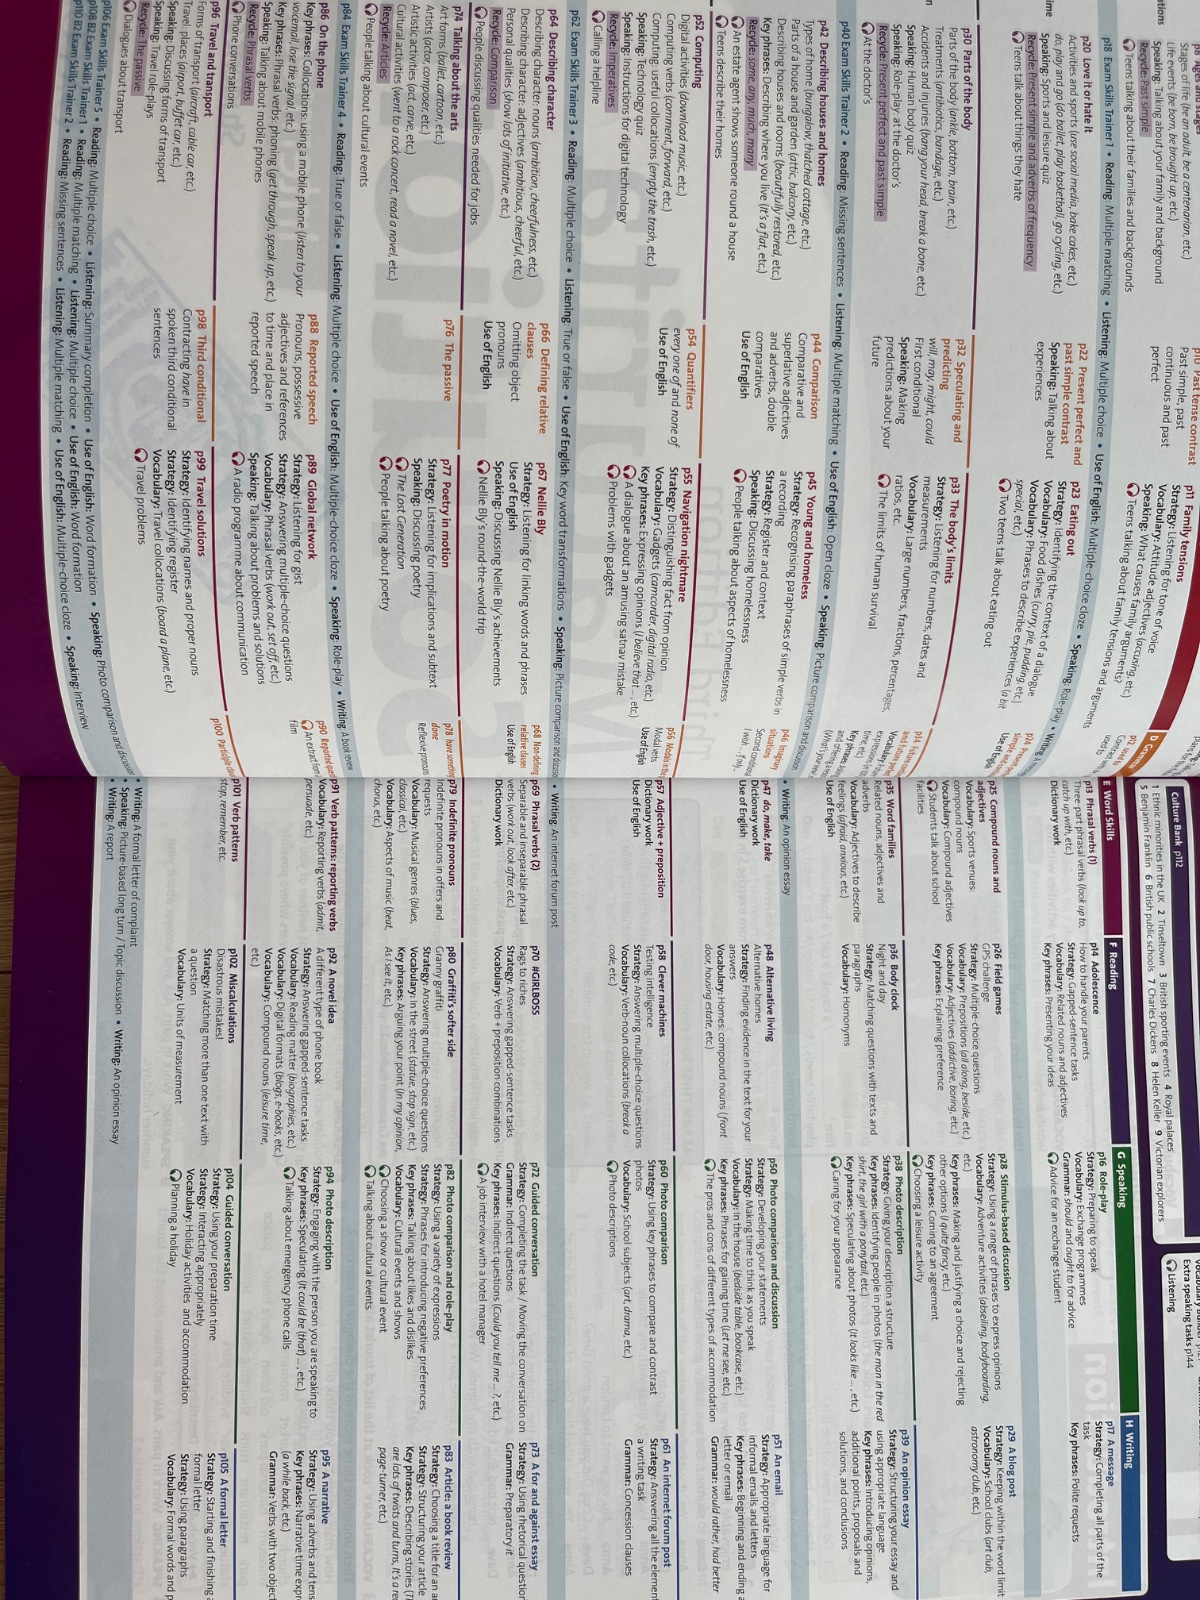 p6 Ages and stages
Stages of life (be an adult, be a centenarian, etc.)
Life events (be born, be brought up, etc.)
Speaking: Talking about your family and background
Recycle: Past simple
Teens talking about their families and backgrounds
p10 Past tense contrast
Past simple, past
continuous and past
perfect
p11 Family tensions
Strategy: Listening for tone of voice
Vocabulary: Attitude adjectives (accusing, etc.)
Speaking: What causes family arguments?
Teens talking about family tensions and arguments
p18 Exam Skills Trainer 1 • Reading: Multiple matching • Listening: Multiple choice • Use of English: Multiple-choice cloze • Speaking: Role-play • Writing:
p20 Love it or hate it
Activities and sports (use social media, bake cakes, etc.)
do, play and go (do ballet, play basketball, go cycling, etc.)
Speaking: Sports and leisure quiz
Recycle: Present simple and adverbs of frequency
Teens talk about things they hate
p22 Present perfect and
past simple contrast
Speaking: Talking about
experiences
p23 Eating out
Strategy: Identifying the context of a dialogue
Vocabulary: Food dishes (curry, pie, pudding, etc.)
Vocabulary: Phrases to describe experiences (a bit
special, etc.)
Two teens talk about eating out
p30 Parts of the body
Parts of the body (ankle, bottom, brain, etc.)
Treatments (antibiotics, bandage, etc.)
Accidents and injuries (bang your head, break a bone, etc.)
Speaking: Human body quiz
Speaking: Role-play: at the doctor's
Recycle: Present perfect and past simple
At the doctor's
p32 Speculating and
predicting
will, may, might, could
First conditional
Speaking: Making
predictions about your
future
p33 The body's limits
Strategy: Listening for numbers, dates and
measurements
Vocabulary: Large numbers, fractions, percentages,
ratios, etc.
The limits of human survival
p40 Exam Skills Trainer 2 • Reading: Missing sentences • Listening: Multiple matching • Use of English: Open cloze • Speaking: Picture comparison and discussion
p42 Describing houses and homes
Types of home (bungalow, thatched cottage, etc.)
Parts of a house and garden (attic, balcony, etc.)
Describing houses and rooms (beautifully restored, etc.)
Key phrases: Describing where you live (It's a flat, etc.)
Recycle: some, any, much, many
An estate agent shows someone round a house
Teens describe their homes
p44 Comparison
Comparative and
superlative adjectives
and adverbs, double
comparatives
Use of English
p45 Young and homeless
Strategy: Recognising paraphrases of simple verbs in
a recording
Strategy: Register and context
Speaking: Discussing homelessness
People talking about aspects of homelessness
p46 Imaginary
situations
Second conditional
I wish ..., If only...
p52 Computing
Digital activities (download music, etc.)
Computing verbs (comment, forward, etc.)
Computing: useful collocations (empty the trash, etc.)
Speaking: Technology quiz
Speaking: Instructions for digital technology
Recycle: Imperatives
Calling a helpline
p54 Quantifiers
every one of and none of
Use of English
p55 Navigation nightmare
Strategy: Distinguishing fact from opinion
Vocabulary: Gadgets (camcorder, digital radio, etc.)
Key phrases: Expressing opinions (I believe that..., etc.)
A dialogue about an amusing satnav mistake
Problems with gadgets
p56 Modals in the
Modal verbs
Use of English
p62 Exam Skills Trainer 3 • Reading: Multiple choice • Listening: True or false • Use of English: Key word transformations • Speaking: Picture comparison and discussion
p64 Describing character
Describing character: nouns (ambition, cheerfulness, etc.)
Describing character: adjectives (ambitious, cheerful, etc.)
Personal qualities (show lots of initiative, etc.)
Recycle: Comparison
People discussing qualities needed for jobs
p66 Defining relative
clauses
Omitting object
pronouns
Use of English
p67 Nellie Bly
Strategy: Listening for linking words and phrases
Use of English
Speaking: Discussing Nellie Bly's achievements
Nellie Bly's round-the-world trip
p68 Non-defining
relative clauses
Use of English
p74 Talking about the arts
Art forms (ballet, cartoon, etc.)
Artists (actor, composer, etc.)
Artistic activities (act, carve, etc.)
Cultural activities (went to a rock concert, read a novel, etc.)
Recycle: Articles
People talking about cultural events
p76 The passive
p77 Poetry in motion
Strategy: Listening for implications and subtext
Speaking: Discussing poetry
The Lost Generation
People talking about poetry
p78 have something
done
Reflexive pronouns
p84 Exam Skills Trainer 4 • Reading: True or false • Listening: Multiple choice • Use of English: Multiple-choice cloze • Speaking: Role-play • Writing: A book review
p86 On the phone
Key phrases: Collocations: using a mobile phone (listen to your
voicemail, lose the signal, etc.)
Key phrases: Phrasal verbs: phoning (get through, speak up, etc.)
Speaking: Talking about mobile phones
Recycle: Phrasal verbs
Phone conversations
p88 Reported speech
Pronouns, possessive
adjectives and references
to time and place in
reported speech
p89 Global network
Strategy: Listening for gist
Strategy: Answering multiple-choice questions
Vocabulary: Phrasal verbs (work out, set off, etc.)
Speaking: Talking about problems and solutions
A radio programme about communication
p90 Reported questions
An extract from a
film
p96 Travel and transport
Forms of transport (aircraft, cable car, etc.)
Travel: places (airport, buffet car, etc.)
Speaking: Discussing forms of transport
Speaking: Travel role-plays
Recycle: The passive
Dialogues about transport
p98 Third conditional
Contracting have in
spoken third conditional
sentences
p99 Travel solutions
Strategy: Identifying names and proper nouns
Strategy: Identifying register
Vocabulary: Travel collocations (board a plane, etc.)
Travel problems
p100 Participle
p106 Exam Skills Trainer 5 • Reading: Multiple choice • Listening: Summary completion • Use of English: Word formation • Speaking: Photo comparison and discussion
p108 B2 Exam Skills Trainer 1 • Reading: Multiple matching • Listening: Multiple choice • Use of English: Word formation
p110 B2 Exam Skills Trainer 2 • Reading: Missing sentences • Listening: Multiple matching • Use of English: Multiple-choice cloze • Speaking: Interview
Extra speaking tasks p144
Listening
Culture Bank p112
1 Ethnic minorities in the UK 2 Tinseltown 3 British sporting events 4 Royal palaces
5 Benjamin Franklin 6 British public schools 7 Charles Dickens 8 Helen Keller 9 Victorian explorers
E Word Skills
F Reading
G Speaking
H Writing
p13 Phrasal verbs (1)
Three part phrasal verbs (look up to,
catch up with, etc.)
Dictionary work
p14 Adolescence
How to handle your parents
Strategy: Gapped-sentence tasks
Vocabulary: Related nouns and adjectives
Key phrases: Presenting your ideas
p16 Role-play
Strategy: Preparing to speak
Vocabulary: Exchange programmes
Grammar: should and ought to for advice
Advice for an exchange student
p17 A message
Strategy: Completing all parts of the
task
Key phrases: Polite requests
p25 Compound nouns and
adjectives
Vocabulary: Sports venues:
compound nouns
Vocabulary: Compound adjectives
Students talk about school
facilities
p26 Field games
GPS challenge
Strategy: Multiple-choice questions
Vocabulary: Prepositions (all along, beside, etc.)
Vocabulary: Adjectives (addictive, boring, etc.)
Key phrases: Explaining preference
p28 Stimulus-based discussion
Strategy: Using a range of phrases to express opinions
Vocabulary: Adventure activities (abseiling, bodyboarding,
etc.)
Key phrases: Making and justifying a choice and rejecting
other options (I quite fancy, etc.)
Key phrases: Coming to an agreement
Choosing a leisure activity
p29 A blog post
Strategy: Keeping within the word limit
Vocabulary: School clubs (art club,
astronomy club, etc.)
p35 Word families
Related nouns, adjectives and
adverbs
Vocabulary: Adjectives to describe
feelings (afraid, anxious, etc.)
Use of English
p36 Body clock
Night and day
Strategy: Matching questions with texts and
paragraphs
Vocabulary: Homonyms
p38 Photo description
Strategy: Giving your description a structure
Key phrases: Identifying people in photos (the man in the red
shirt, the girl with a ponytail, etc.)
Key phrases: Speculating about photos (It looks like ..., etc.)
Caring for your appearance
p39 An opinion essay
Strategy: Structuring your essay and
using appropriate language
Key phrases: Introducing opinions,
additional points, proposals and
solutions, and conclusions
• Writing: An opinion essay
p47 do, make, take
Dictionary work
Use of English
p48 Alternative living
Alternative homes
Strategy: Finding evidence in the text for your
answers
Vocabulary: Homes: compound nouns (front
door, housing estate, etc.)
p50 Photo comparison and discussion
Strategy: Developing your statements
Speaking: Making time to think as you speak
Vocabulary: In the house (bedside table, bookcase, etc.)
Key phrases: Phrases for gaining time (Let me see, etc.)
The pros and cons of different types of accommodation
p51 An email
Strategy: Appropriate language for
informal emails and letters
Key phrases: Beginning and ending a
letter or email
Grammar: would rather, had better
p57 Adjective + preposition
Dictionary work
Use of English
p58 Clever machines
Testing intelligence
Strategy: Answering multiple-choice questions
Vocabulary: Verb-noun collocations (break a
code, etc.)
p60 Photo comparison
Strategy: Using key phrases to compare and contrast
photos
Vocabulary: School subjects (art, drama, etc.)
Photo descriptions
p61 An internet forum post
Strategy: Answering all the elements
a writing task
Grammar: Concession clauses
• Writing: An internet forum post
p69 Phrasal verbs (2)
Separable and inseparable phrasal
verbs (work out, look after, etc.)
Dictionary work
p70 #GIRLBOSS
Rags to riches
Strategy: Answering gapped-sentence tasks
Vocabulary: Verb + preposition combinations
p72 Guided conversation
Strategy: Completing the task / Moving the conversation on
Grammar: Indirect questions
Key phrases: Indirect questions (Could you tell me ... ?, etc.)
A job interview with a hotel manager
p73 A for and against essay
Strategy: Using rhetorical question
Grammar: Preparatory it
p79 Indefinite pronouns
Indefinite pronouns in offers and
requests
Vocabulary: Musical genres (blues,
classical, etc.)
Vocabulary: Aspects of music (beat,
chorus, etc.)
p80 Graffiti's softer side
Granny graffiti
Strategy: Answering multiple-choice questions
Vocabulary: In the street (statue, stop sign, etc.)
Key phrases: Arguing your point (In my opinion,
As I see it, etc.)
p82 Photo comparison and role-play
Strategy: Using a variety of expressions
Strategy: Phrases for introducing negative preferences
Key phrases: Talking about likes and dislikes
Vocabulary: Cultural events and shows
Choosing a show or cultural event
Talking about cultural events
p83 Article: a book review
Strategy: Choosing a title for an
Strategy: Structuring your article
Key phrases: Describing stories
are lots of twists and turns, It's a real
page-turner, etc.)
p91 Verb patterns: reporting verbs
Vocabulary: Reporting verbs (admit,
persuade, etc.)
p92 A novel idea
A different type of phone book
Strategy: Answering gapped-sentence tasks
Vocabulary: Reading matter (biographies, etc.)
Vocabulary: Digital formats (blogs, e-books, etc.)
Vocabulary: Compound nouns (leisure time,
etc.)
p94 Photo description
Strategy: Engaging with the person you are speaking to
Key phrases: Speculating (It could be (that) ..., etc.)
Talking about emergency phone calls
p95 A narrative
Strategy: Using adverbs and
Key phrases: Narrative time
(a while back, etc.)
Grammar: Verbs with two
p101 Verb patterns
stop, remember, etc.
p102 Miscalculations
Disastrous mistakes!
Strategy: Matching more than one text with
a question
Vocabulary: Units of measurement
p104 Guided conversation
Strategy: Using your preparation time
Strategy: Interacting appropriately
Vocabulary: Holiday activities and accommodation
Planning a holiday
p105 A formal letter
Strategy: Starting and finishing a
formal letter
Strategy: Using paragraphs
Vocabulary: Formal words and
• Writing: A formal letter of complaint
• Speaking: Picture-based long turn / Topic discussion • Writing: An opinion essay
• Writing: A report